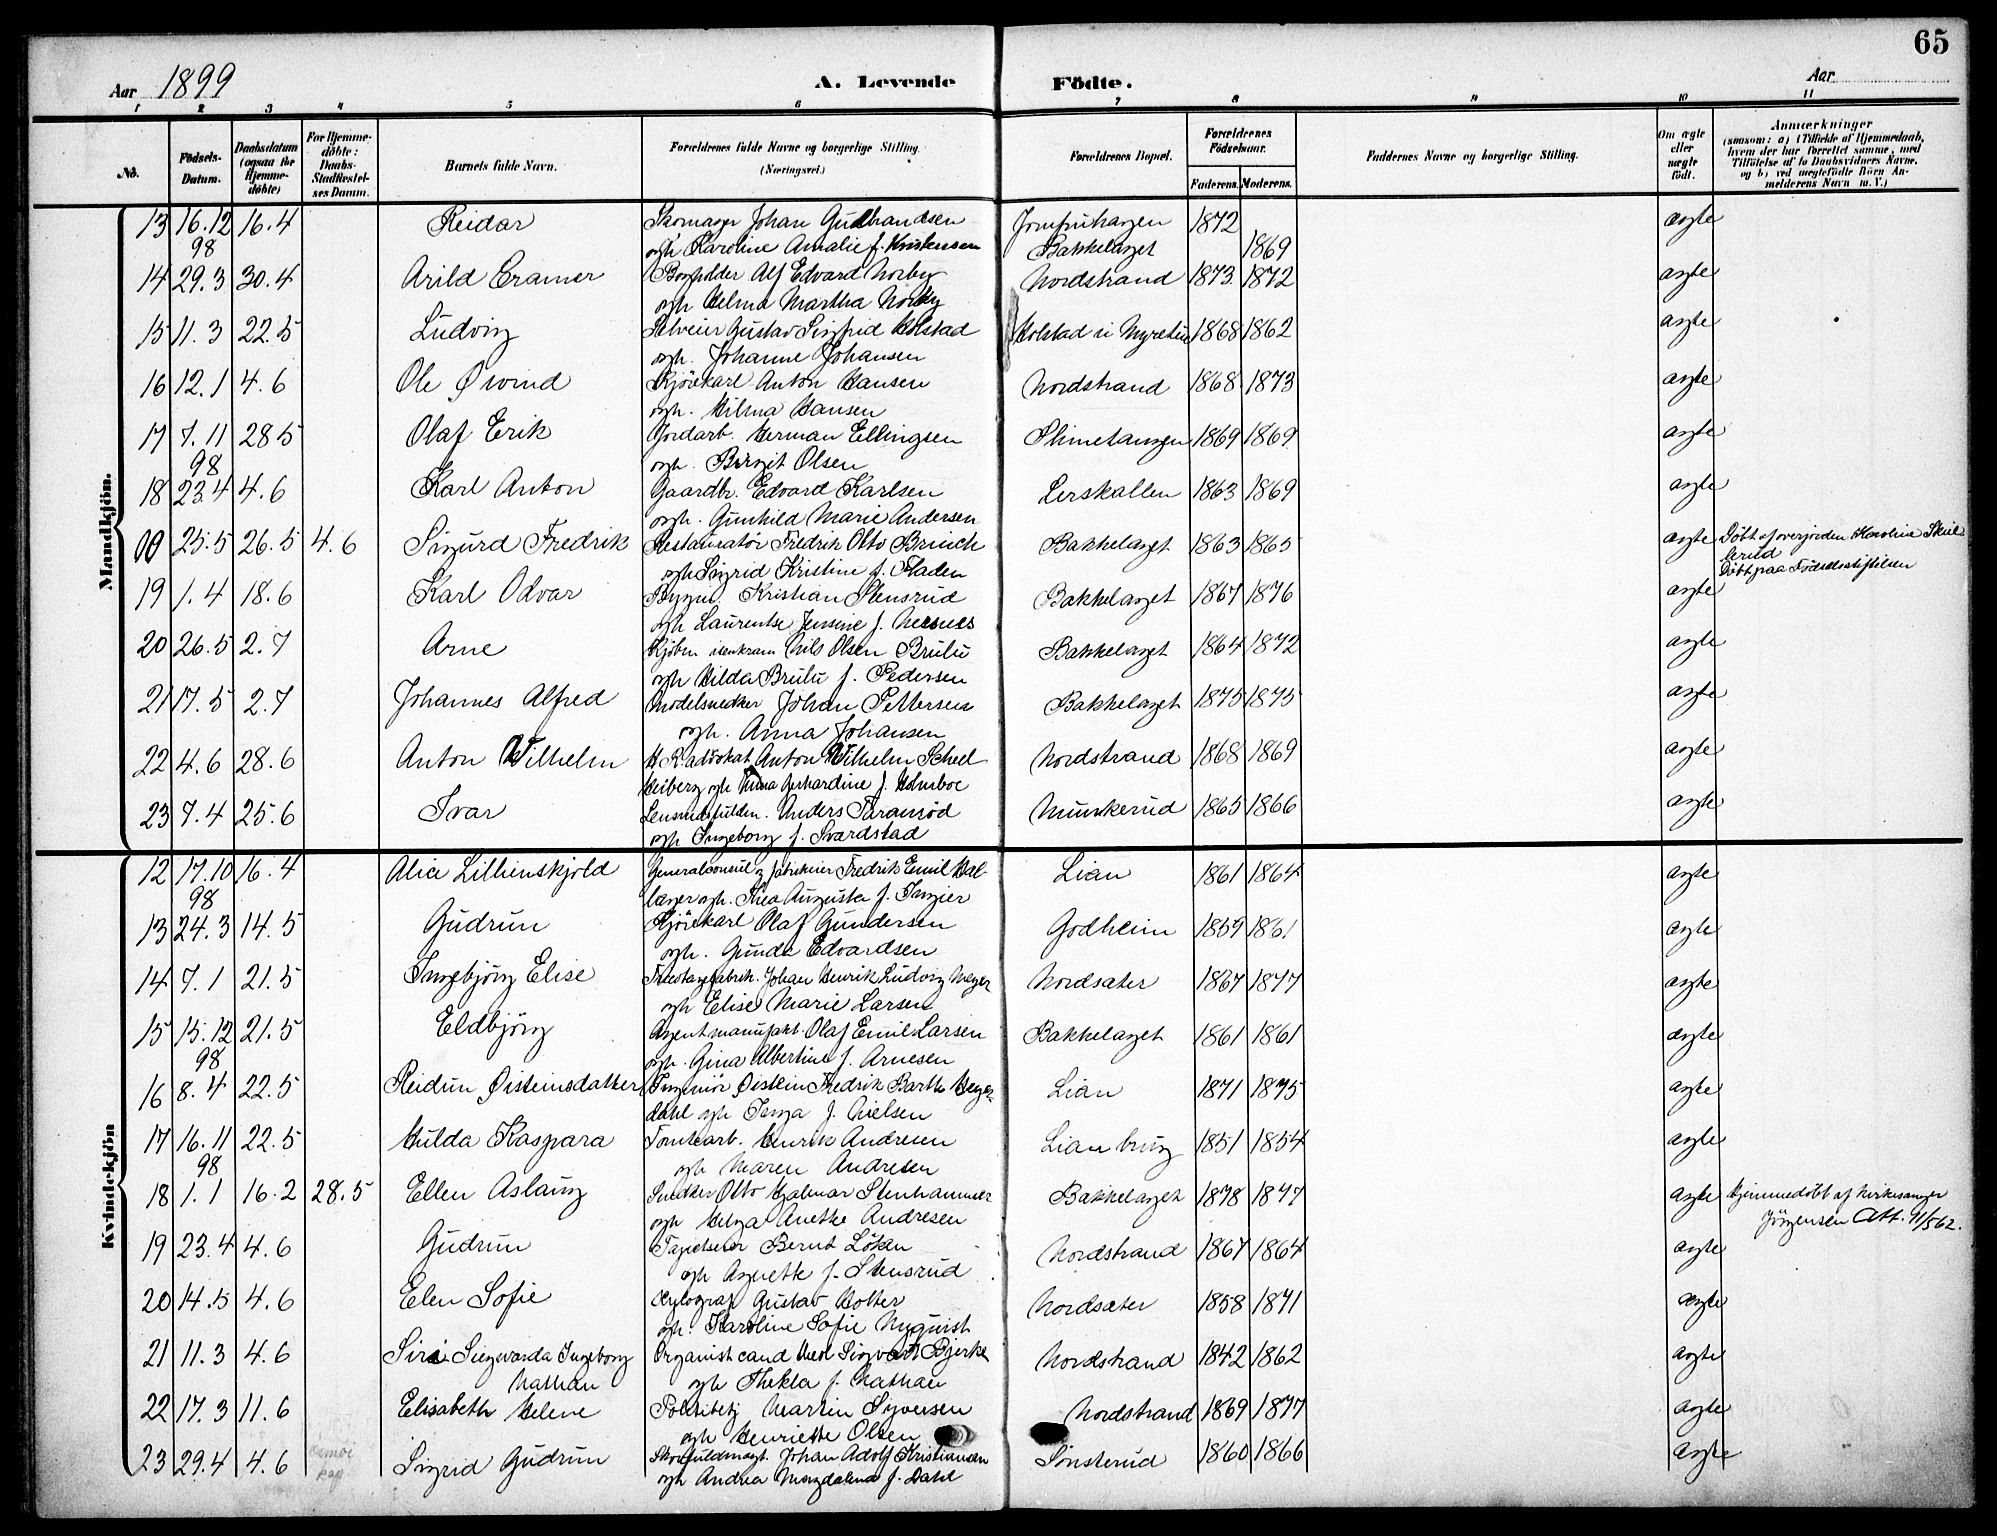 65
Aar 1899 A. Levende Födte. Aar
1 2 3 4 5 6 7 8 9 10 11
No.
Födsels-Datum.
Daabsdatum (ogsaa for Hjemmedöbte)
For Hjemmedöbte: Daabs-Stadfæstelses Datum.
Barnets fulde Navn.
Forældrenes fulde Navne og borgerlige Stilling. (Næringsvei.)
Forældrenes Bopæl.
Forældrenes Födselsaar.
Faderens. Moderens.
Faddernes Navne og borgerlige Stilling.
Om ægte eller uægte födt.
Anmærkninger
(saasom: a) i Tilfælde af Hjemmedaab,
hvem der har forrettet samme, med
Tilföielse af to Daabsvidners Navne,
og b) ved uægtefödte Börn An-
melderens Navn m. V.)
Mandkjön.
13 16.12 16.4 Reidar Skomager Johan Gulbrandsen Jomfruhaugen 1872 ægte
98 og h. Karoline Amalie f. Kristensen Bækkelaget 1869
14 29.3 30.4 Arild Cramer Bogholder Alf Edvard Norby Nordstrand 1873 1872 ægte
og h. Helma Martha Norby
15 11.3 22.5 Ludvig Selveier Gustav Sigfrid Holstad Holstad i 1868 1862 ægte
og h. Johanne Johansen
16 12.1 4.6 Ole Øivind Kjørekarl Anton Hansen Nordstrand 1868 1873 ægte
og h. Hilma Hansen
17 7.11 28.5 Olaf Erik Jordarb. Herman Ellingsen 1869 1869 ægte
98 og h. Birgit Olsen
18 23.4 4.6 Karl Anton Gaardbr. Edvard Karlsen Lerskallen 1863 1869 ægte
og h. Gunhild Marie Andersen
00 25.5 26.5 4.6 Sigurd Fredrik Restauratør Fredrik Otto Brinch Bækkelaget 1863 1865 ægte Døbt af overjorden Karoline Skul-
lerud
og h. Sigrid Kristine f. Fladen Døbt paa Fødselsstiftelsen
19 1.4 18.6 Karl Odvar Bygm. Kristian Stensrud Bækkelaget 1867 1876 ægte
og h. Laurentse Jensine f. Nesnes
20 26.5 2.7 Arne Kjøbm. isenkram Nils Olsen Brulu Bækkelaget 1864 1872 ægte
og h. Hilda Brulu f. Pedersen
21 17.5 2.7 Johannes Alfred Modelsnedker Johan Pettersen Bækkelaget 1875 1875 ægte
og h. Anna Johansen
22 4.6 28.6 Anton Wilhelm H. R. advokat Anton Wilhelm Scheel Nordstrand 1868 1869 ægte
Heiberg og h. Anna Gerhardine f. Holmboe
23 7.4 25.6 Ivar Lensmdsfuldm. Anders Taranrød Munkerud 1865 1866 ægte
og h. Ingeborg f. Svardstad
Kvindekjön
12 17.10 16.4 Alice Lillienskjold Generalconsul og fabrikeier Fredrik Emil Hal- Lian 1861 1864 ægte
98 lager og h. Thea Augusta f.
13 24.3 14.5 Gudrun Kjørekarl Olaf Gundersen Godheim 1859 1861 ægte
og h. Gunda Edvardsen
14 7.1 21.5 Ingebjørg Elise Tricotagefabrik. Johan Henrik Ludvig Meyer Nordsæter 1867 1877 ægte
og h. Elise Marie Larsen
15 15.12 21.5 Eldbjørg Agent manufakt. Olaf Emil Larsen Bækkelaget 1861 1861 ægte
98 og h. Gina Albertine f. Arnesen
16 8.4 22.5 Reidun Øisteinsdatter Ingeniør Øistein Fredrik Barth Heyer- Lian 1871 1875 ægte
dahl og h. Inga f. Nielsen
17 16.11 22.5 Hulda Kaspara Tomtearb. Henrik Andresen Lian brug 1851 1854 ægte
98 og h. Maren Andresen
18 1.1 16.2 28.5 Ellen Aslaug Snedker Otto Hjalmar Stenhammer Bækkelaget 1878 1877 ægte Hjemmedøbt af kirkesanger
og h. Helga Anette Andresen Jörgensen Att. 11/5 62.
19 23.4 4.6 Gudrun Tapetserer Bernt Løken Nordstrand 1867 1864 ægte
og h. Agnette f. Stensrud
20 14.5 4.6 Elen Sofie Xylograf Gustav Holter Nordsæter 1858 1871 ægte
og h. Karoline Sofie Nyquist
21 11.3 4.6 Siri Siegvarda Ingeborg Organist cand. theol Sigvart Bjerke Nordstrand 1842 1862 ægte
Nathan og h. Thekla f. Nathan
22 17.3 11.6 Elisabeth Helene Politibetj Martin Syversen Nordstrand 1869 1877 ægte
og h. Henriette Olsen
23 29.4 4.6 Sigrid Gudrun Skovfuldmægt. Johan Adolf Kristiansen Sønsterud 1860 1866 ægte
og h. Andrea Magdalena f. Dahl